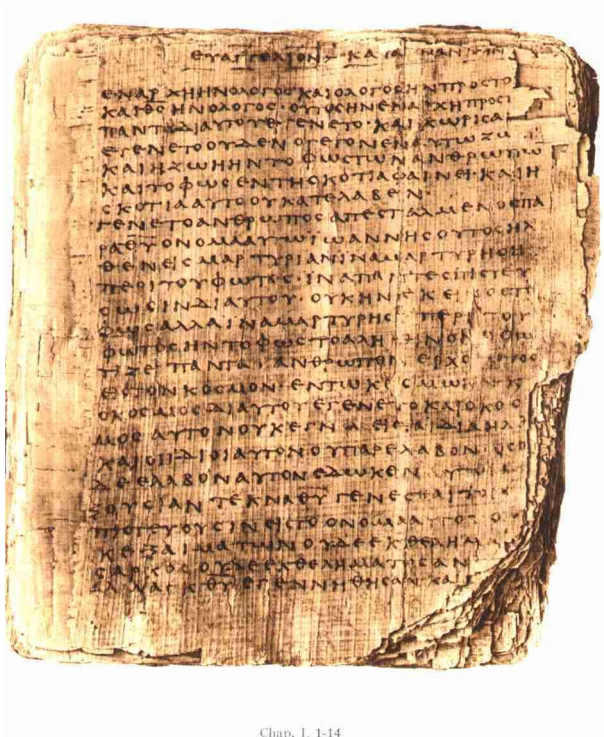 ΕΥΑΓΓΕΛΙΟΝ ΚΑΤΑ ΑΝΝΗΝ
ΕΝΑΡΧΗΗΝΟΛΟΓΟϹΚΑΙΟΛΟΓΟϹΗΝΠΡΟϹΤΟ
ΚΑΙΘϹΗΝΟΛΟΓΟϹ·ΟΥΤΟϹΗΝΕΝΑΡΧΗΠΡΟϹΤ
ΠΑΝΤΑΔΙΑΥΤΟΥΕΓΕΝΕΤΟ·ΚΑΙΧΩΡΙϹΑ
ΕΓΕΝΕΤΟΟΥΔΕΝΟΓΕΓΟΝΕΝΑΥΤΩΖΩ
ΚΑΙΗΖΩΗΗΝΤΟΦΩϹΤΩΝΑΝΘΡΩΠΩ
ΚΑΙΤΟΦΩϹΕΝΤΗϹΚΟΤΙΑΦΑΙΝΕΙΚΑΙΗ
ϹΚΟΤΙΑΑΥΤΟΟΥΚΑΤΕΛΑΒΕΝ·
ΓΕΝΕΤΟΑΝΘΡΩΠΟϹΑΠΕϹΤΑΛΜΕΝΟϹΠΑ
ΡΑΘΥΟΝΟΜΑΑΥΤΩΙΩΑΝΝΗϹΟΥΤΟϹΗΛ
ΘΕΝΕΙϹΜΑΡΤΥΡΙΑΝΙΝΑΜΑΡΤΥΡΗϹΗ
ΠΕΡΙΤΟΥΦΩΤΟϹ·ΙΝΑΠΑΝΤΕϹΠΙϹΤΕΥ
ϹΩϹΙΝΔΙΑΥΤΟΥ·ΟΥΚΗΝΕΚΕΙΝΟϹΤΟ
ΦΩϹΑΛΛΑΙΝΑΜΑΡΤΥΡΗϹΗΠΕΡΙΤΟΥ
ΦΩΤΟϹΗΝΤΟΦΩϹΤΟΑΛΗΘΙΝΟΝΟΦΩ
ΤΙΖΕΙΠΑΝΤΑΑΝΘΡΩΠΟΝΕΡΧΟΜΕΝΟ
ΕΙϹΤΟΝΚΟϹΜΟΝ·ΕΝΤΩΚΟϹΜΩΗΝΚΑΙ
ΟΚΟϹΜΟϹΔΙΑΥΤΟΥΕΓΕΝΕΤΟΚΑΙΟΚΟϹ
ΜΟϹΑΥΤΟΝΟΥΚΕΓΝΩΕΙϹΤΑΙΔΙΑΗΛ
ΚΑΙΟΙΙΔΙΟΙΑΥΤΟΝΟΥΠΑΡΕΛΑΒΟΝ·ΟϹΟ
ΔΕΕΛΑΒΟΝΑΥΤΟΝΕΔΩΚΕΝΑΥΤΟΙ
ΞΟΥϹΙΑΝΤΕΚΝΑΘΥΓΕΝΕϹΘΑΙΤΟΙϹ
ΠΙϹΤΕΥΟΥϹΙΝΕΙϹΤΟΟΝΟΜΑΑΥΤΟΥΟ
ΚΕΞΑΙΜΑΤΩΝΟΥΔΕΕΚΘΕΛΗΜΑ
ϹΑΡΚΟϹΟΥΔΕΕΚΘΕΛΗΜΑΤΟϹΑΝ
ΑΛΛΑΕΚΘΥΕΓΕΝΝΗΘΗϹΑΝΚΑΙ
Chap. I, 1-14